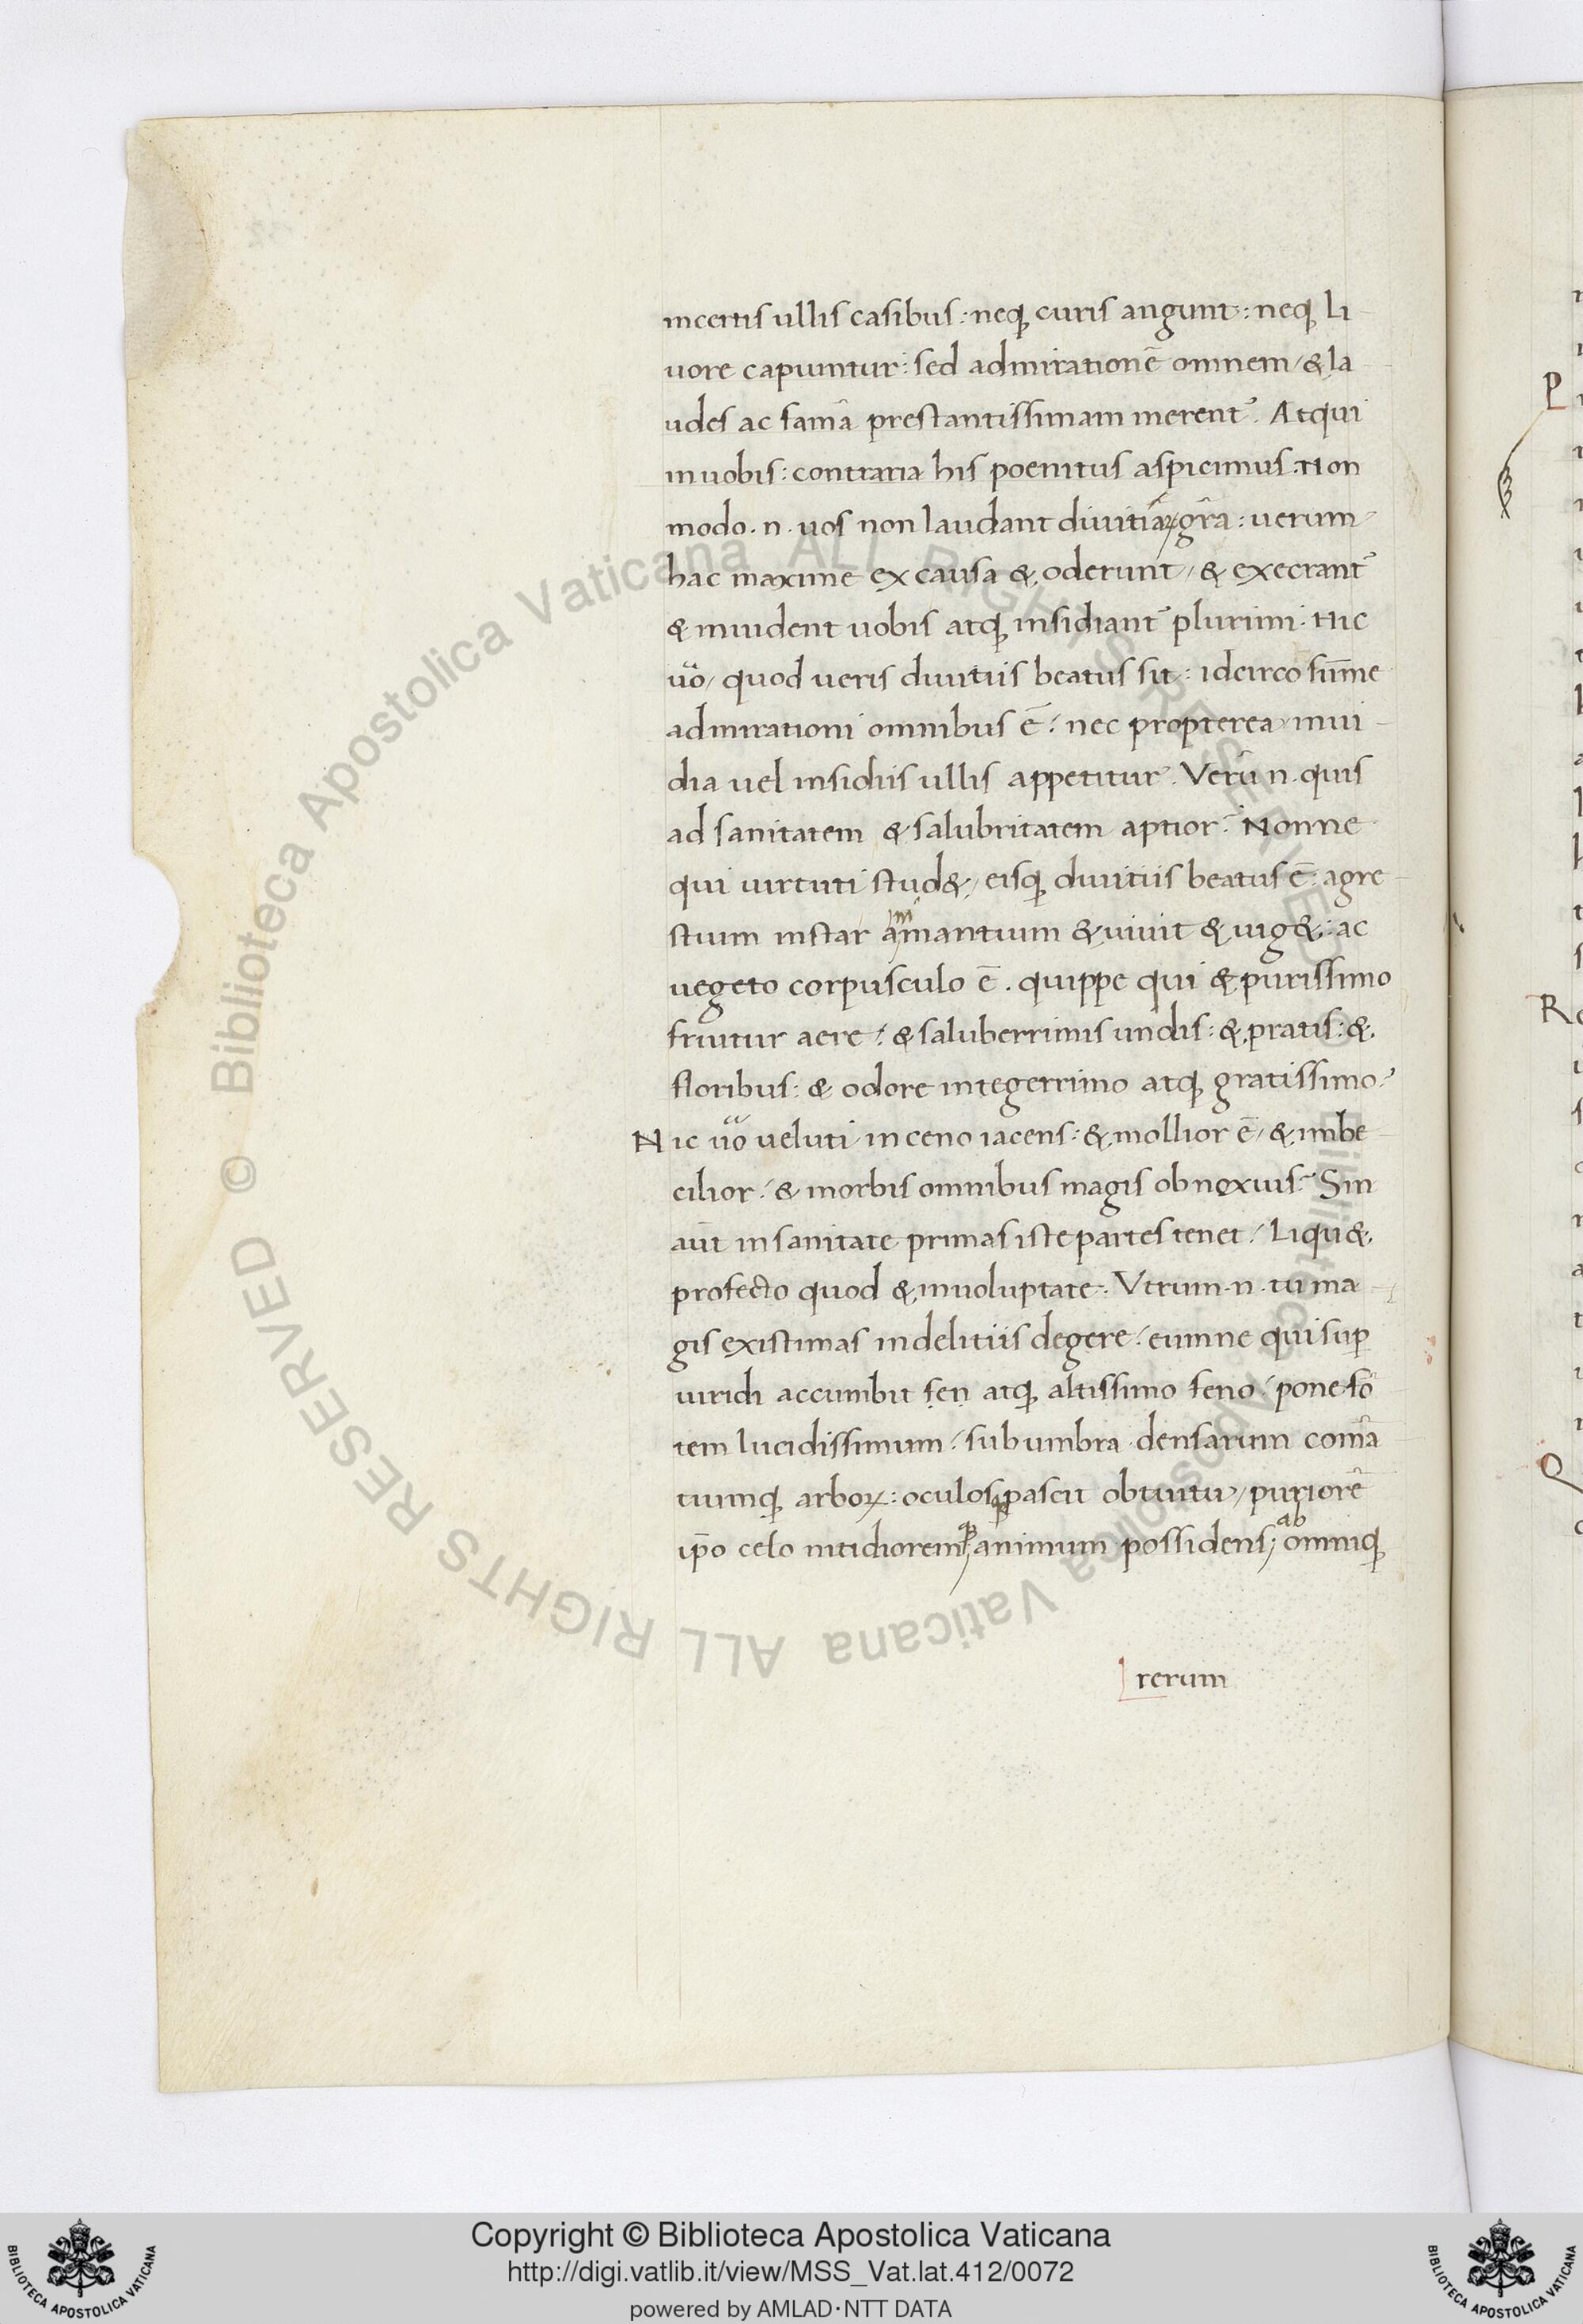 incertis ullis casibus: neq; curis angunt: neq; li
uore capiuntur: sed admirationē omnem / & la
udes ac famā prestantissimam merent᷑. Atqui
in uobis: contraria his poenitus aspicimus. Non
modo .n. uos non laudant diuitiaꝝ gr̄a: uerum
hac maxime ex causa & oderunt / & execrant᷑
& inuident uobis atq; insidiant᷑ plurimi. Hic
uo / quod ueris diuitiis beatus sit: idcirco sūme
admirationi omnibus ē / nec propterea inui
dia uel insidiis ullis appetitur. Verū .n. quis
ad sanitatem & salubritatem aptior? Nonne
qui uirtuti stud& / eisq; diuitiis beatus ē: agre
stium instar animantium & uiuit & uig&: ac
uegeto corpusculo ē. quippe qui & purissimo
fruitur aere / & saluberrimis undis: & pratis: &
floribus: & odore integerrimo atq; gratissimo?
Hic uo ueluti in ceno iacens: & mollior ē / & imbe
cilior / & morbis omnibus magis obnoxius? Sin
aūt in sanitate primas iste partes tenet / liqu&
profecto quod & in uoluptate. Vtrum .n. tu ma
gis existimas in delitiis degere / eumne qui sup̱
uiridi accumbit fen atq; altissimo feno / pone fō
tem lucidissimum / sub umbra densarum comā
tiumq; arboꝝ: oculos pascit obtuitu / puriorē
ip̄o celo nitidioremq; animum possidens; ab omniq;
rerum
Copyright © Biblioteca Apostolica Vaticana
http://digi.vatlib.it/view/MSS_Vat.lat.412/0072
powered by AMLAD·NTT DATA
© Biblioteca Apostolica Vaticana ALL RIGHTS RESERVED
© Biblioteca Apostolica Vaticana ALL RIGHTS RESERVED
BIBLIOTECA APOSTOLICA VATICANA
BIBLIOTECA APOSTOLICA VATICANA